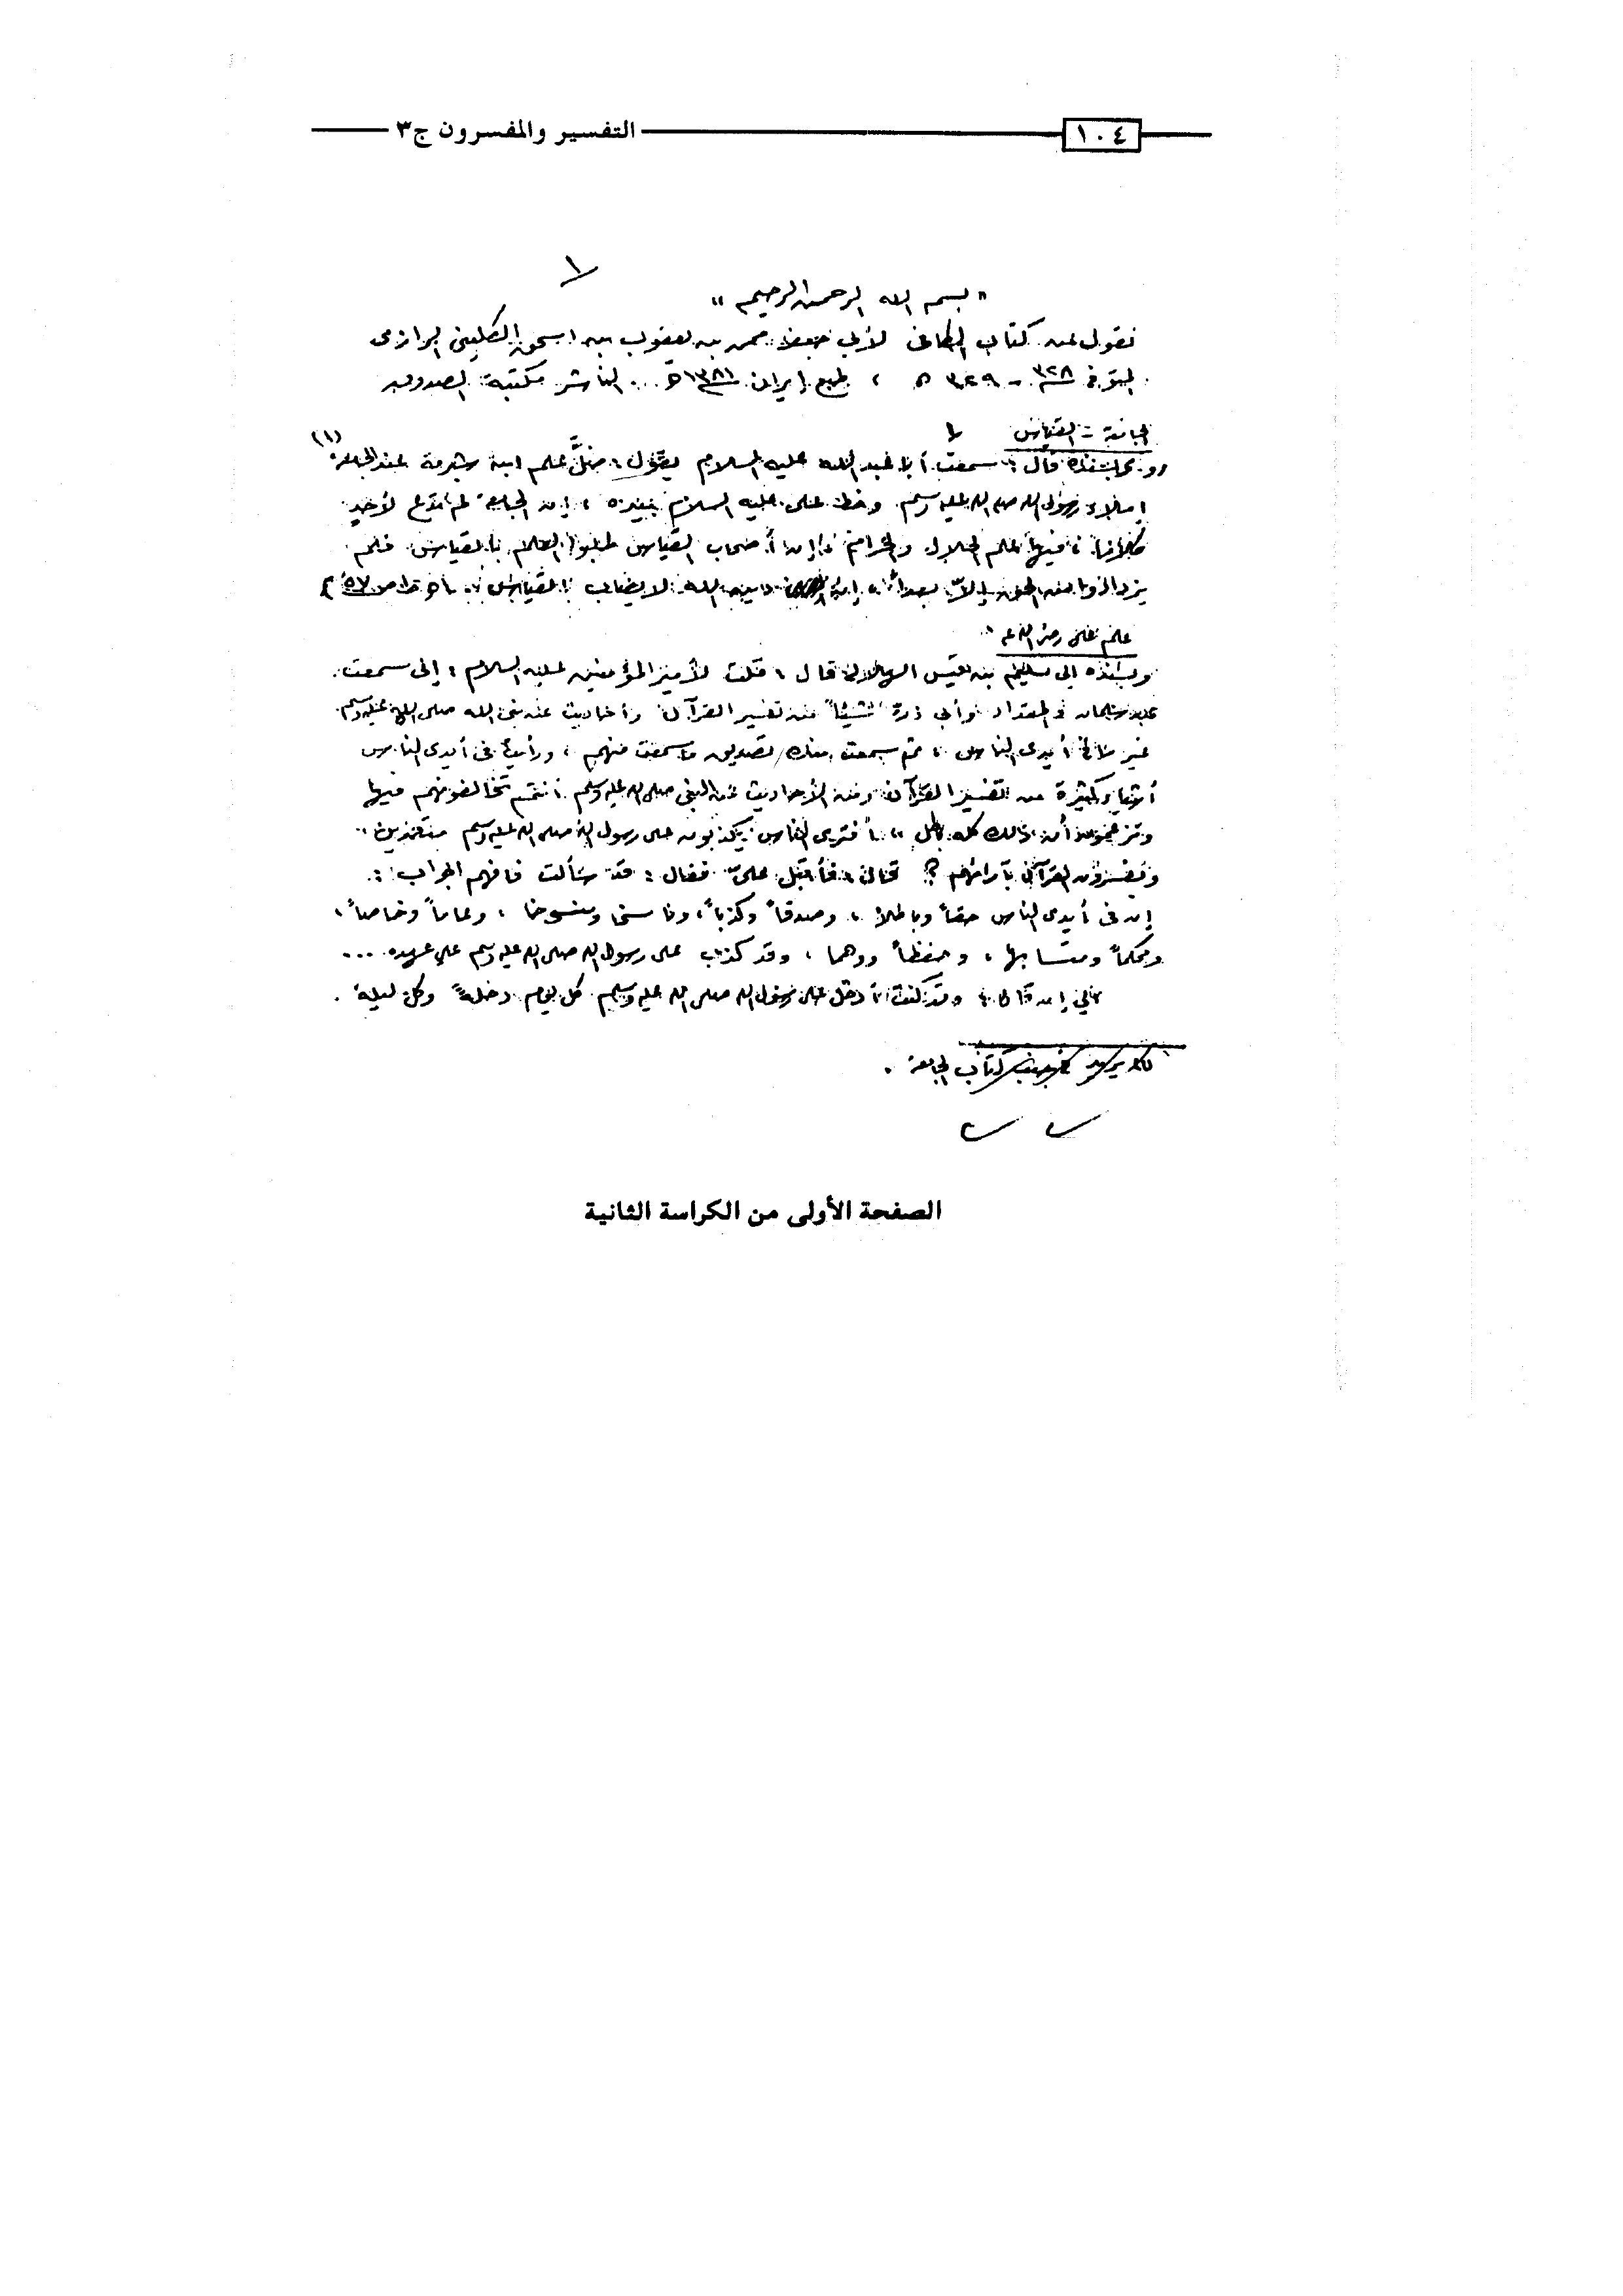 ١٠٤ التفسير والمفسرون ج٣
١
" بسم الله الرحمن الرحيم "
نقول عن كتاب الكافى لأبى جعفر محمد بن يعقوب بن اسحق الكلينى الرازى
المتوفى ٣٢٨ - ٣٢٩ ه ، طبع إيران ١٣٨١ ه .. الناشر مكتبة الصدوق
الجامعة - القياس
روى بسنده قال : سمعت أبا عبد الله عليه السلام يقول : ضلَّ علم ابن شبرمة عند الجامعة (١)
إملاء رسول الله صلى الله عليه وسلم وخط على عليه السلام بيده ، إن الجامعة لم تدع لأحدٍ
كلاماً ، فيها علم الحلال والحرام ، إن أصحاب القياس طلبوا العلم بالقياس فلم
يزدادوا من الحق إلاّ بعداً ، إن دين الله لا يصاب بالقياس . ص ٥٧
علم على رضى الله عنه
وبسنده إلى سليم بن قيس الهلالى قال : قلت لأمير المؤمنين عليه السلام : إنى سمعت
من سلمان والمقداد وأبى ذر شيئاً من تفسير القرآن وأحاديث عن نبى الله صلى الله عليه وسلم
غير ما فى أيدى الناس ، ثم سمعت منك تصديق ما سمعت منهم ، ورأيت فى أيدى الناس
أشياء كثيرة من تفسير القرآن ومن الأحاديث عن النبى صلى الله عليه وسلم أنتم تخالفونهم فيها
وتزعمون أن ذلك كله باطل ، أفترى الناس يكذبون على رسول الله صلى الله عليه وسلم متعمدين ،
ويفسرون القرآن بآرائهم ؟ قال : فأقبل علىّ فقال : قد سألت فافهم الجواب :
إن فى أيدى الناس حقاً وباطلا ، وصدقاً وكذباً ، وناسخا ومنسوخا ، وعاماً وخاصاً ،
ومحكماً ومتشابها ، وحفظاً ووهما ، وقد كذب على رسول الله صلى الله عليه وسلم على عهده ...
إلى إن قال : وقد كنت أدخل على رسول الله صلى الله عليه وسلم كل يوم دخلة وكل ليلة .
كتاب الجامعة .
الصفحة الأولى من الكراسة الثانية